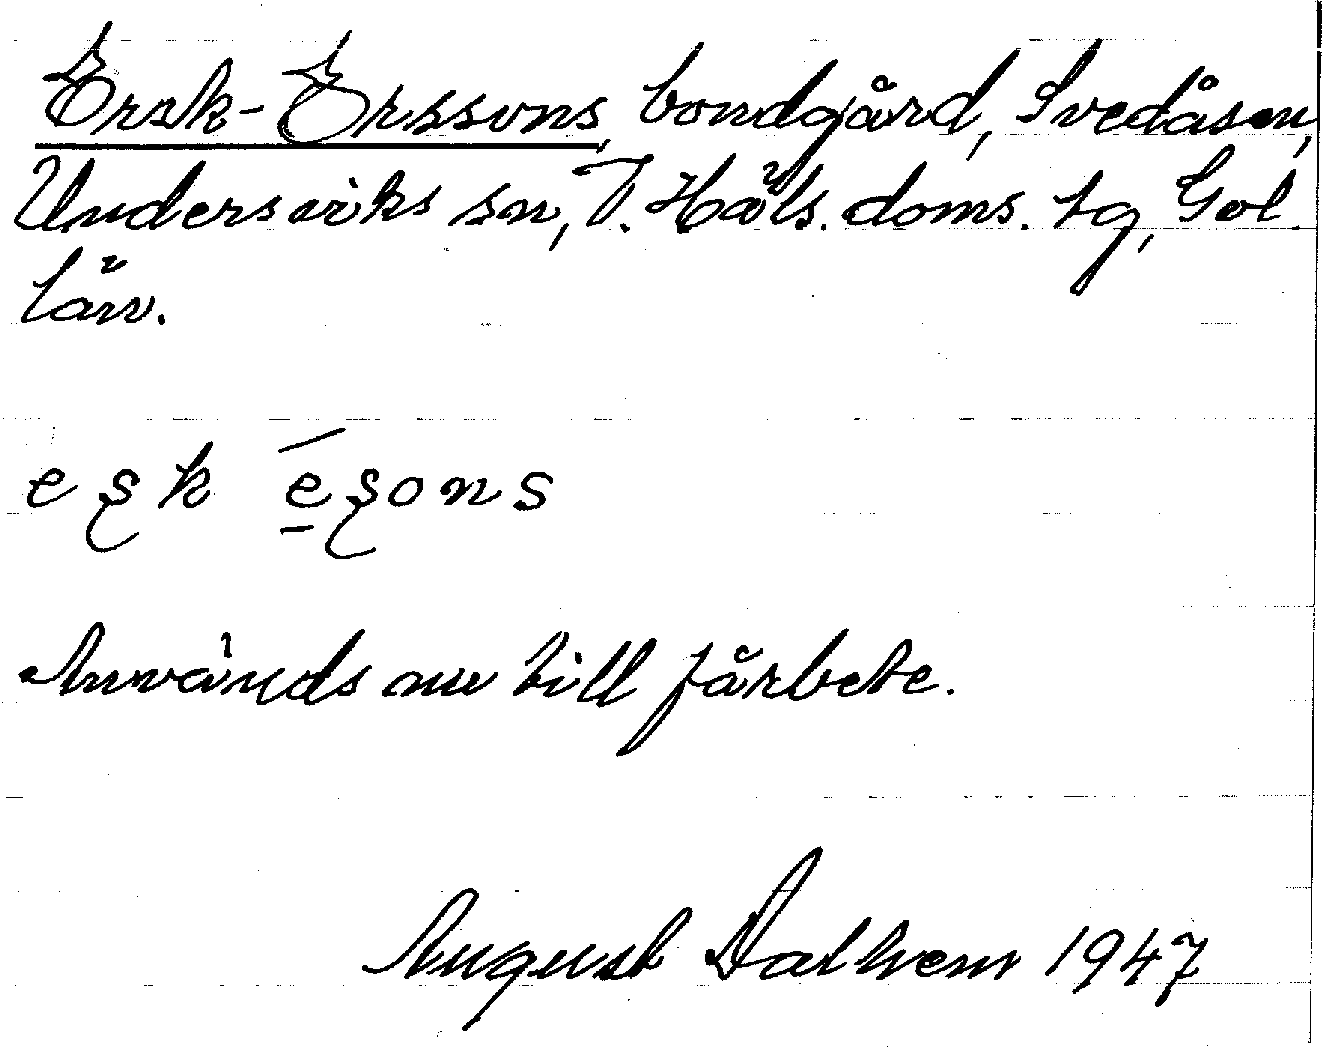 Ersk-Erssons, bondgård, Svedåsen,
Undersviks sn, V. Häls. doms. tg, Gvl.
län.
eʂk eʂons
Används nu till fårbete.
August Dalhem 1947